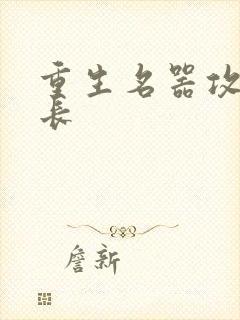 重生名器攻
长
詹新